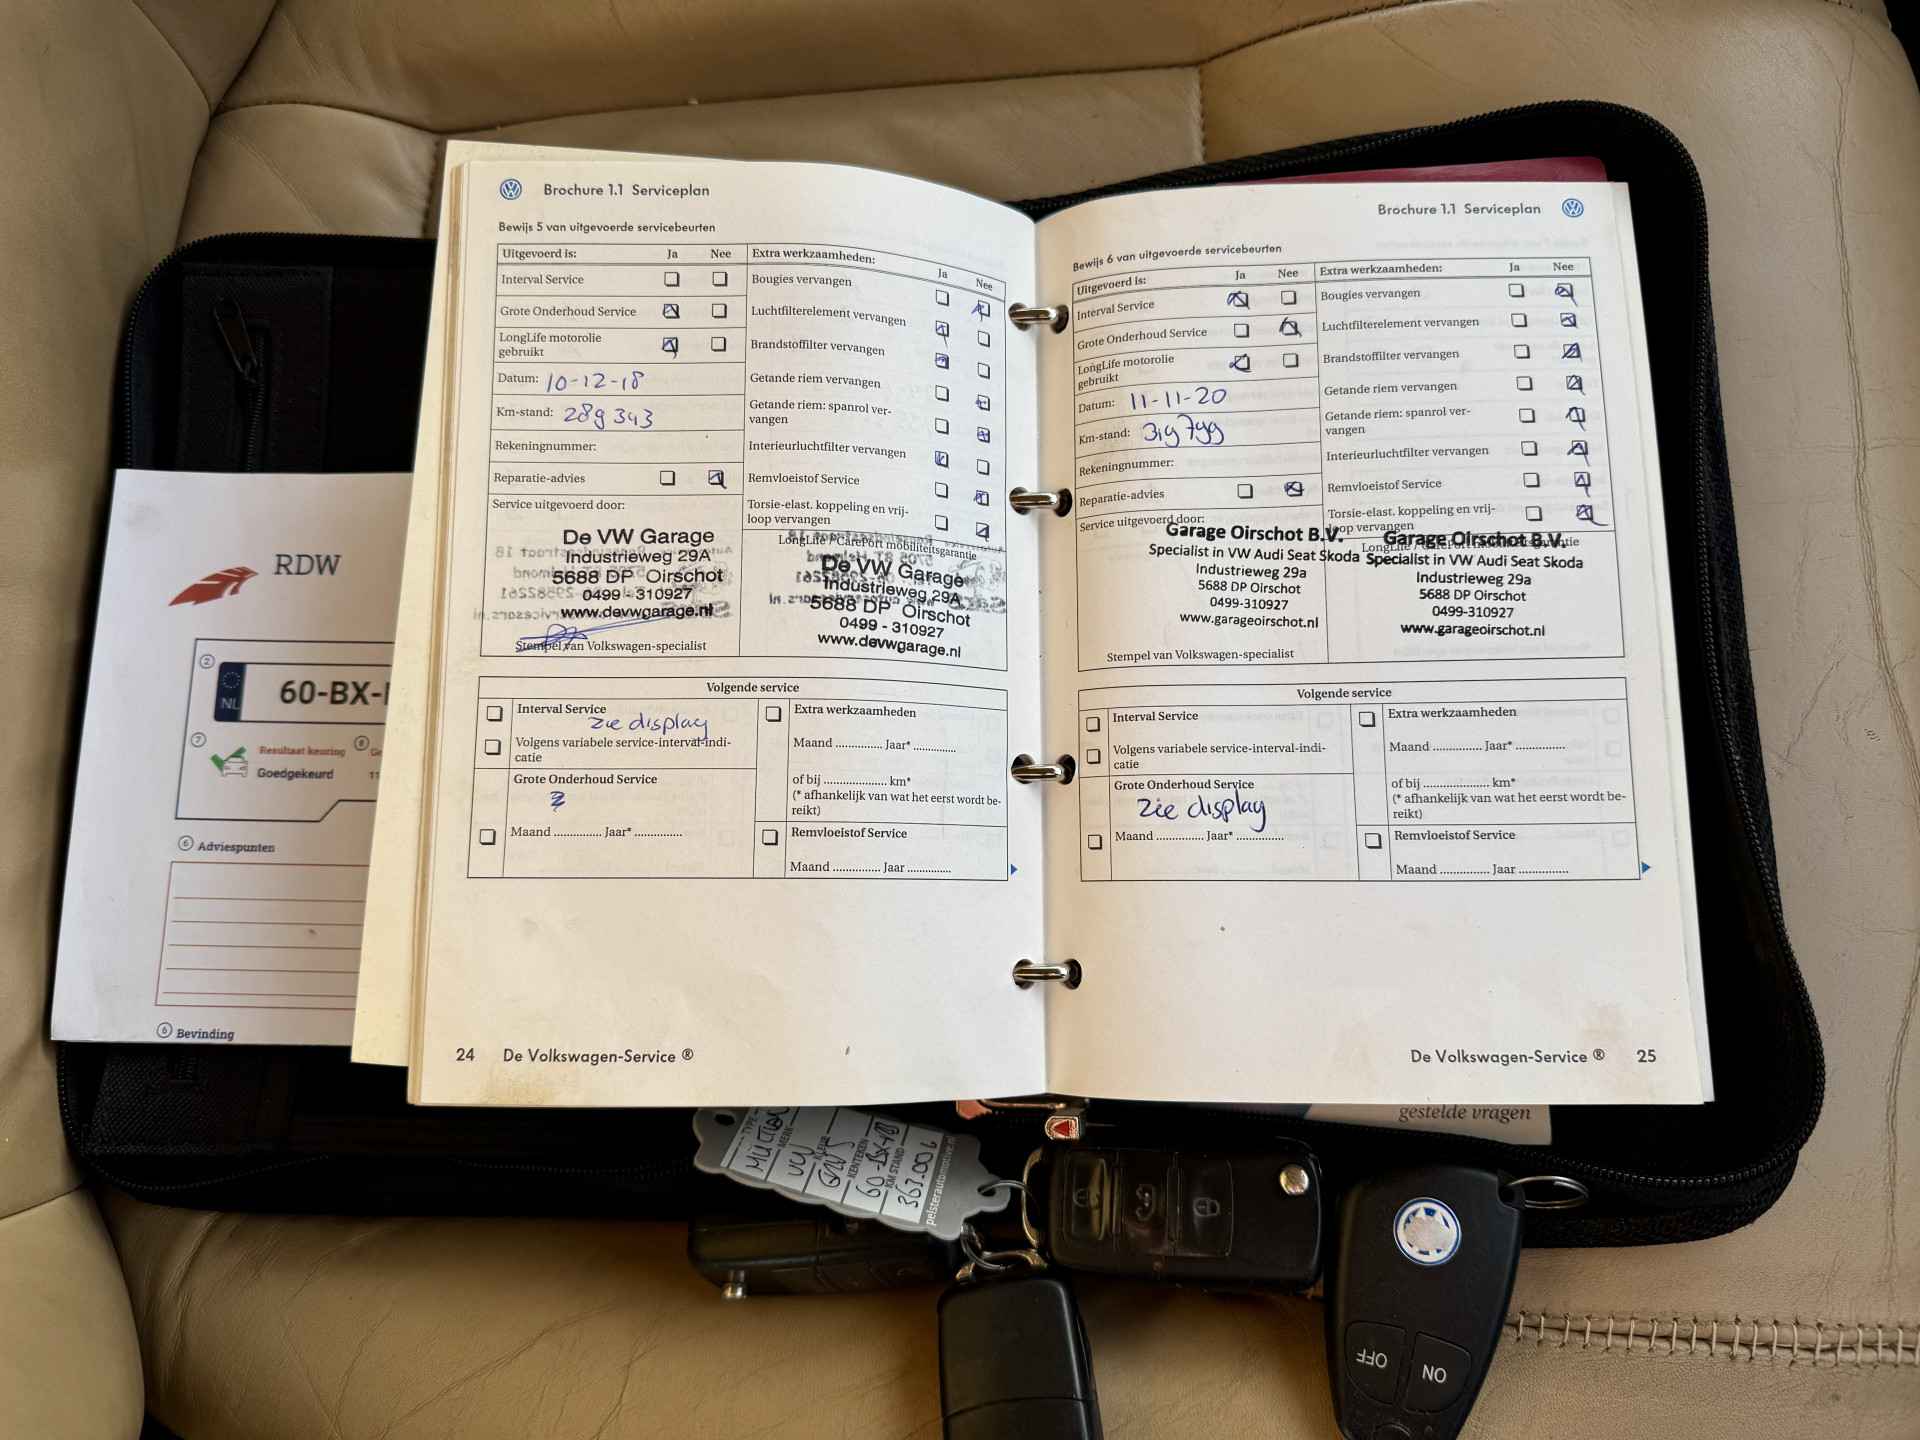 Brochure 1.1 Serviceplan
Bewijs 5 van uitgevoerde servicebeurten
Uitgevoerd is: Ja Nee
Interval Service
Grote Onderhoud Service
LongLife motorolie
gebruikt
Datum: 10-12-18
Km-stand: 289343
Rekeningnummer:
Reparatie-advies
Service uitgevoerd door:
De VW Garage
Industrieweg 29A
5688 DP Oirschot
0499 - 310927
www.devwgarage.nl
Stempel van Volkswagen-specialist
Extra werkzaamheden: Ja Nee
Bougies vervangen
Luchtfilterelement vervangen
Brandstoffilter vervangen
Getande riem vervangen
Getande riem: spanrol ver-
vangen
Interieurluchtfilter vervangen
Remvloeistof Service
Torsie-elast. koppeling en vrij-
loop vervangen
LongLife / CarePort mobiliteitsgarantie
De VW Garage
Industrieweg 29A
5688 DP Oirschot
0499 - 310927
www.devwgarage.nl
Volgende service
Interval Service
zie display
Volgens variabele service-interval-indi-
catie
Grote Onderhoud Service
Maand .............. Jaar* ..............
Extra werkzaamheden
Maand .............. Jaar* .............
of bij ................... km*
(* afhankelijk van wat het eerst wordt be-
reikt)
Remvloeistof Service
Maand ............... Jaar ...............
24 De Volkswagen-Service ®
Brochure 1.1 Serviceplan
Bewijs 6 van uitgevoerde servicebeurten
Uitgevoerd is: Ja Nee
Interval Service
Grote Onderhoud Service
LongLife motorolie
gebruikt
Datum: 11-11-20
Km-stand: 319799
Rekeningnummer:
Reparatie-advies
Service uitgevoerd door:
Garage Oirschot B.V.
Specialist in VW Audi Seat Skoda
Industrieweg 29a
5688 DP Oirschot
0499-310927
www.garageoirschot.nl
Stempel van Volkswagen-specialist
Extra werkzaamheden: Ja Nee
Bougies vervangen
Luchtfilterelement vervangen
Brandstoffilter vervangen
Getande riem vervangen
Getande riem: spanrol ver-
vangen
Interieurluchtfilter vervangen
Remvloeistof Service
Torsie-elast. koppeling en vrij-
loop vervangen
Garage Oirschot B.V.
Specialist in VW Audi Seat Skoda
Industrieweg 29a
5688 DP Oirschot
0499-310927
www.garageoirschot.nl
Volgende service
Interval Service
Volgens variabele service-interval-indi-
catie
Grote Onderhoud Service
zie display
Maand .............. Jaar* ..............
Extra werkzaamheden
Maand .............. Jaar* ..............
of bij .................... km*
(* afhankelijk van wat het eerst wordt be-
reikt)
Remvloeistof Service
Maand ............... Jaar ...............
De Volkswagen-Service ® 25
RDW
2
NL
60-BX-
7 Resultaat keuring 8
Goedgekeurd 11
6 Adviespunten
6 Bevinding
gestelde vragen
TYPE
MERK
VW
KLEUR
KENTEKEN
60-BX-
KM STAND
363.006
pelsterautomotive.nl
OFF
ON